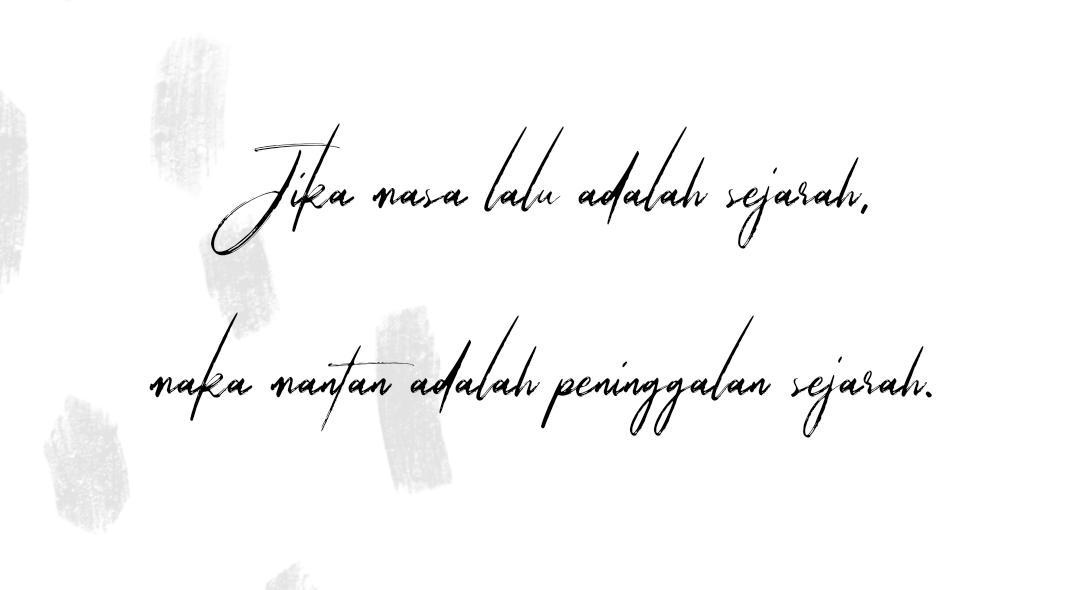 Jika masa lalu adalah sejarah,
maka mantan adalah peninggalan sejarah.